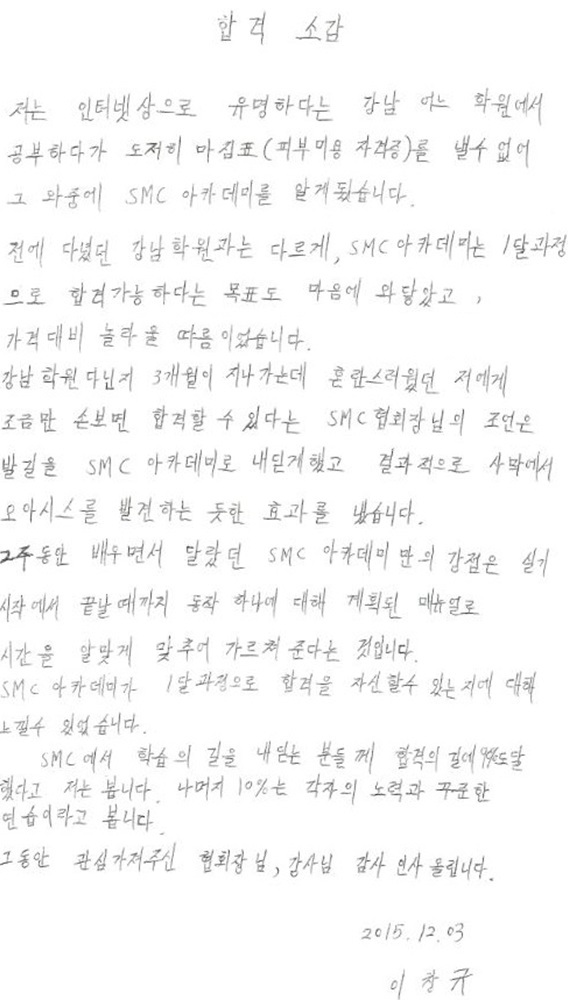 합격 소감
저는 인터넷상으로 유명하다는 강남 어느 학원에서
공부하다가 도저히 마침표(피부미용 자격증)를 낼수 없어
그 와중에 SMC 아카데미를 알게됬습니다.
전에 다녔던 강남학원과는 다르게, SMC아카데미는 1달과정
으로 합격가능하다는 목표도 마음에 와닿았고,
가격대비 놀라울 따름이었습니다.
강남학원다닌지 3개월이 지나가는데 혼란스러웠던 저에게
조금만 손보면 합격할 수 있다는 SMC협회장님의 조언은
발길을 SMC 아카데미로 내딛게했고 결과적으로 사막에서
오아시스를 발견하는 듯한 효과를 냈습니다.
2주동안 배우면서 달랐던 SMC 아카데미만의 강점은 실기
시작에서 끝날때까지 동작 하나에 대해 계획된 매뉴얼로
시간을 알맞게 맞추어 가르쳐 준다는 것입니다.
SMC 아카데미가 1달과정으로 합격을 자신할수 있는지에 대해
느낄수 있었습니다.
SMC에서 학습의 길을 내딛는 분들께 합격의 길에 도달
했다고 저는 봅니다. 나머지 10%는 각자의 노력과 꾸준한
연습이라고 봅니다.
그동안 관심가져주신 협회장님, 강사님 감사 인사 올립니다.
2015. 12. 03
이창규